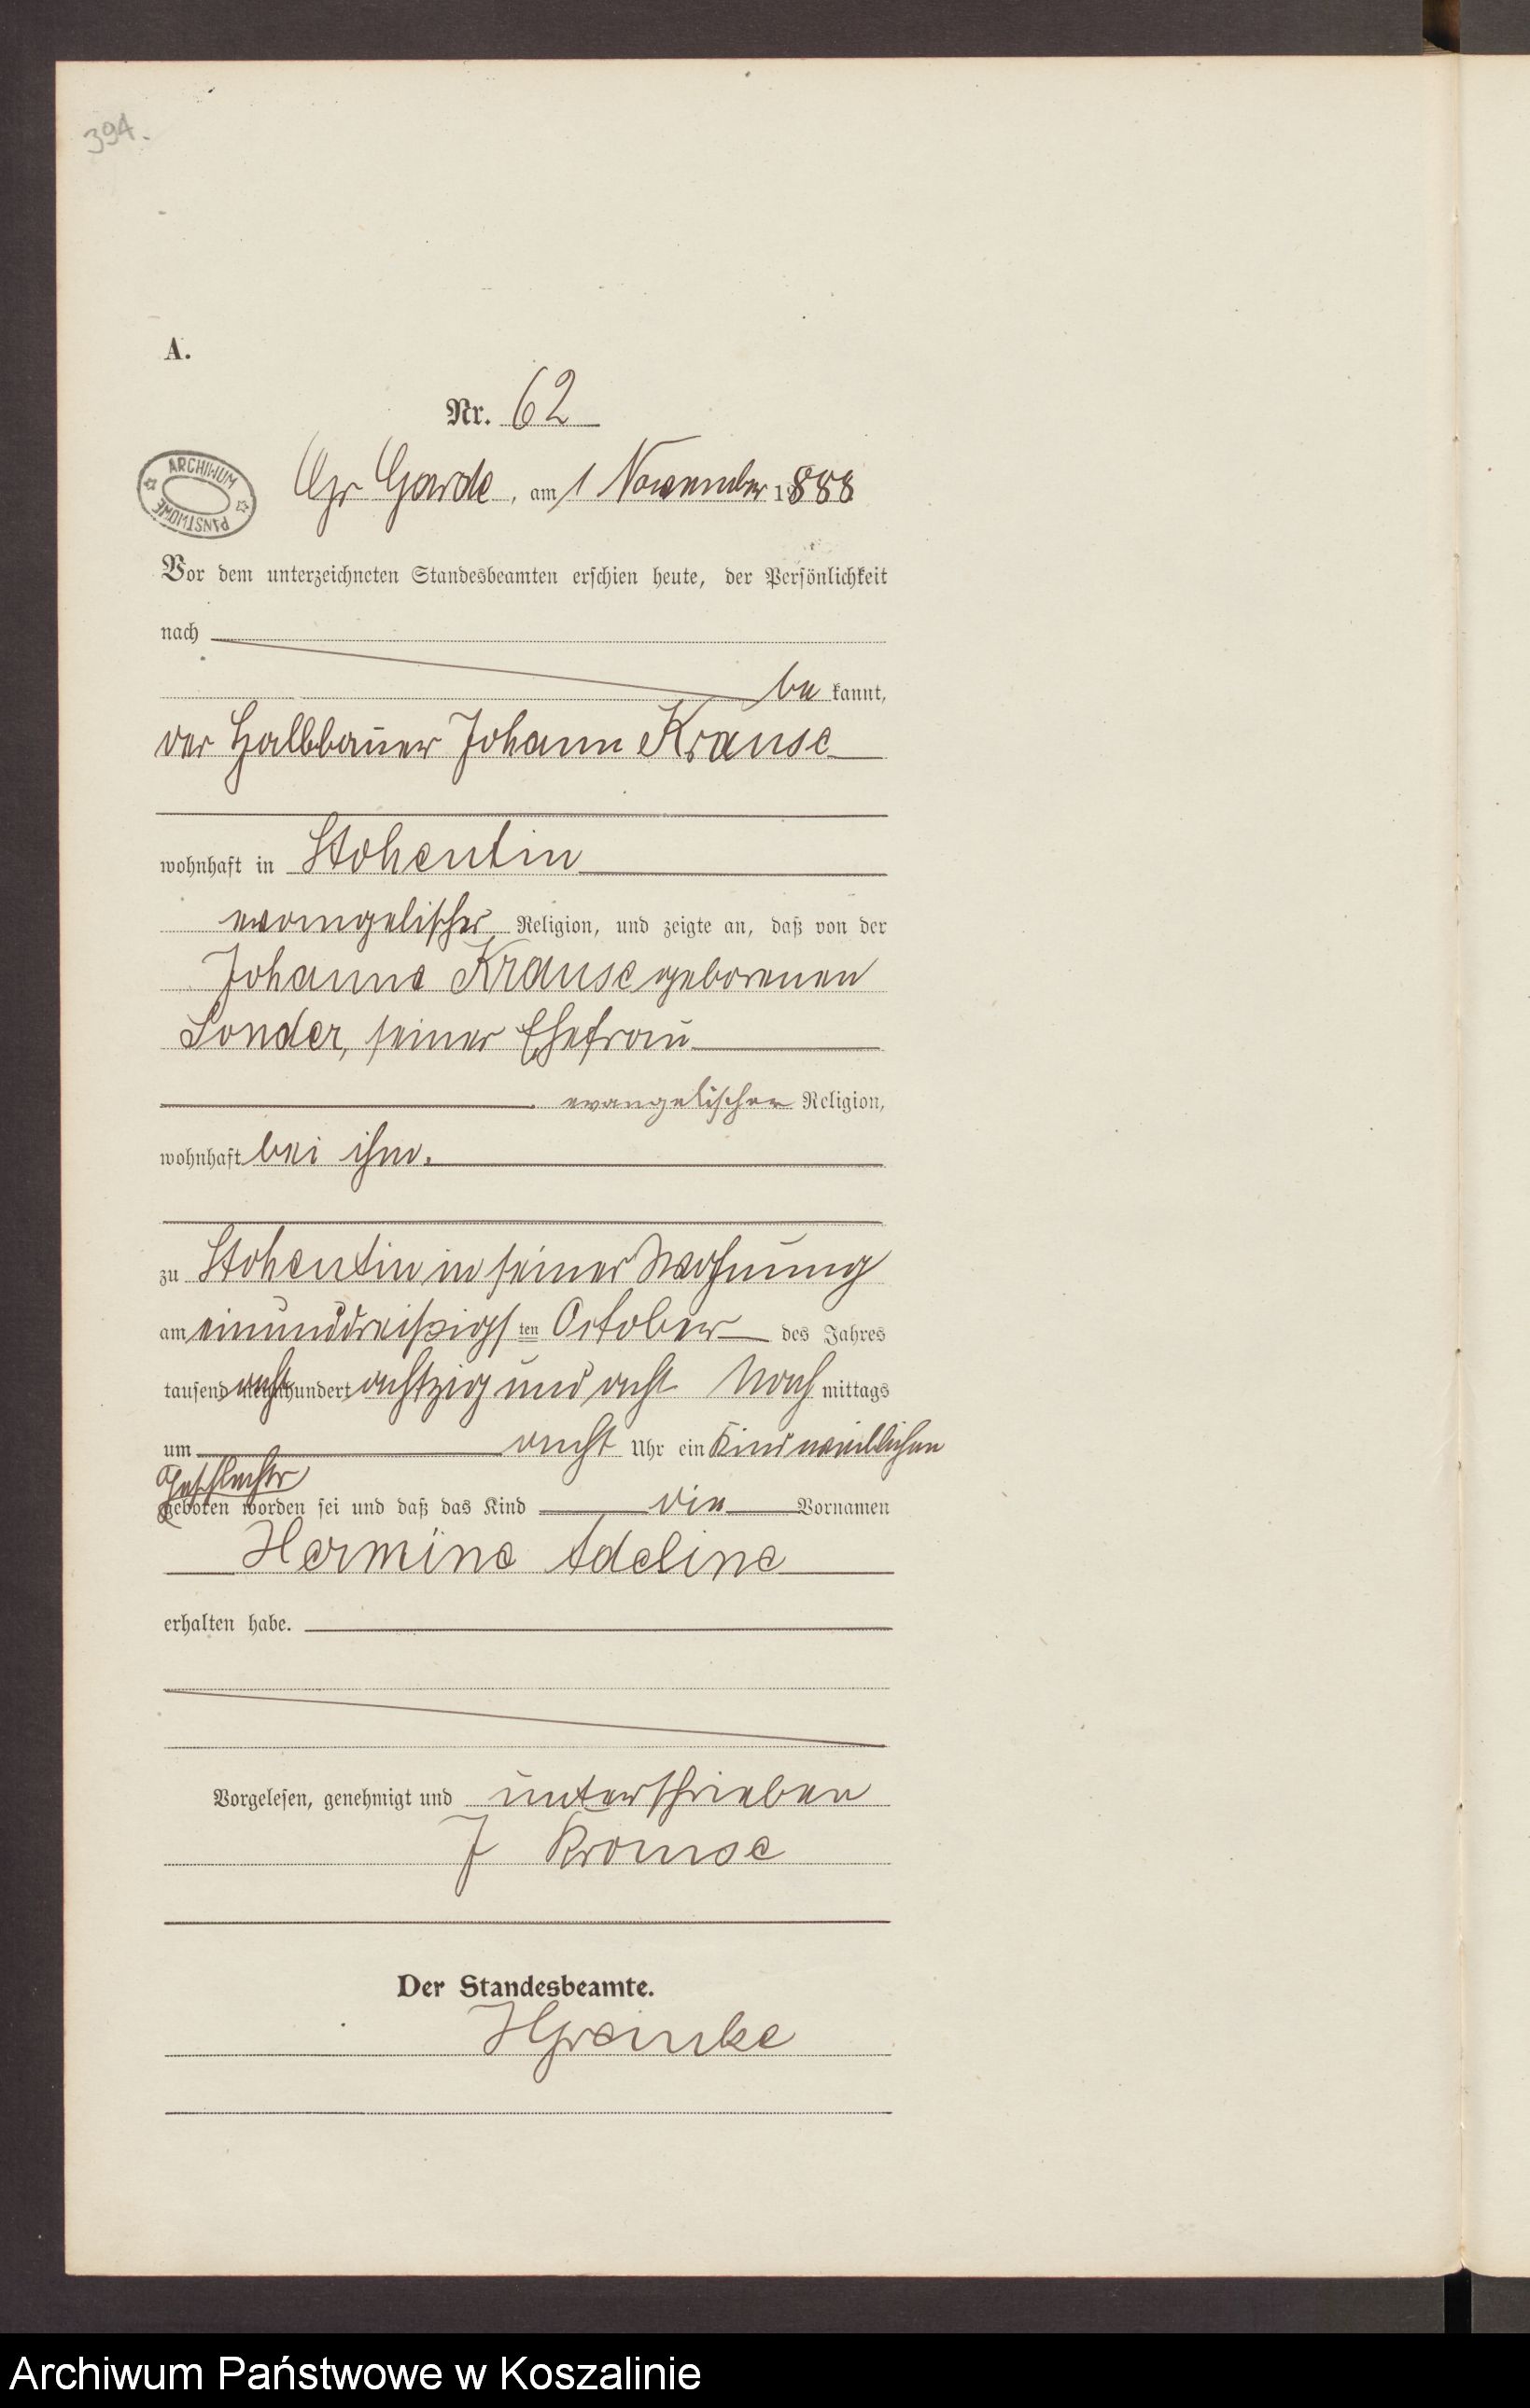 394.
A.
Nr. 62
ARCHIWUM PAŃSTWOWE
Gr Garde, am 1 November 1888
Vor dem unterzeichneten Standesbeamten erschien heute, der Persönlichkeit
nach
be kannt,
der Halbbauer Johann Krause
wohnhaft in Stohentin
evangelischer Religion, und zeigte an, daß von der
Johanne Krause geborenen
Sonder, seiner Ehefrau
evangelischer Religion,
wohnhaft bei ihm.
zu Stohentin in seiner Wohnung
am einunddreißigsten October des Jahres
tausend acht hundert achtzig und acht Nach mittags
um acht Uhr ein Kind weiblichen
Geschlechts
geboren worden sei und daß das Kind die Vornamen
Hermine Adeline
erhalten habe.
Vorgelesen, genehmigt und unterschrieben
J Krause
Der Standesbeamte.
Archiwum Państwowe w Koszalinie